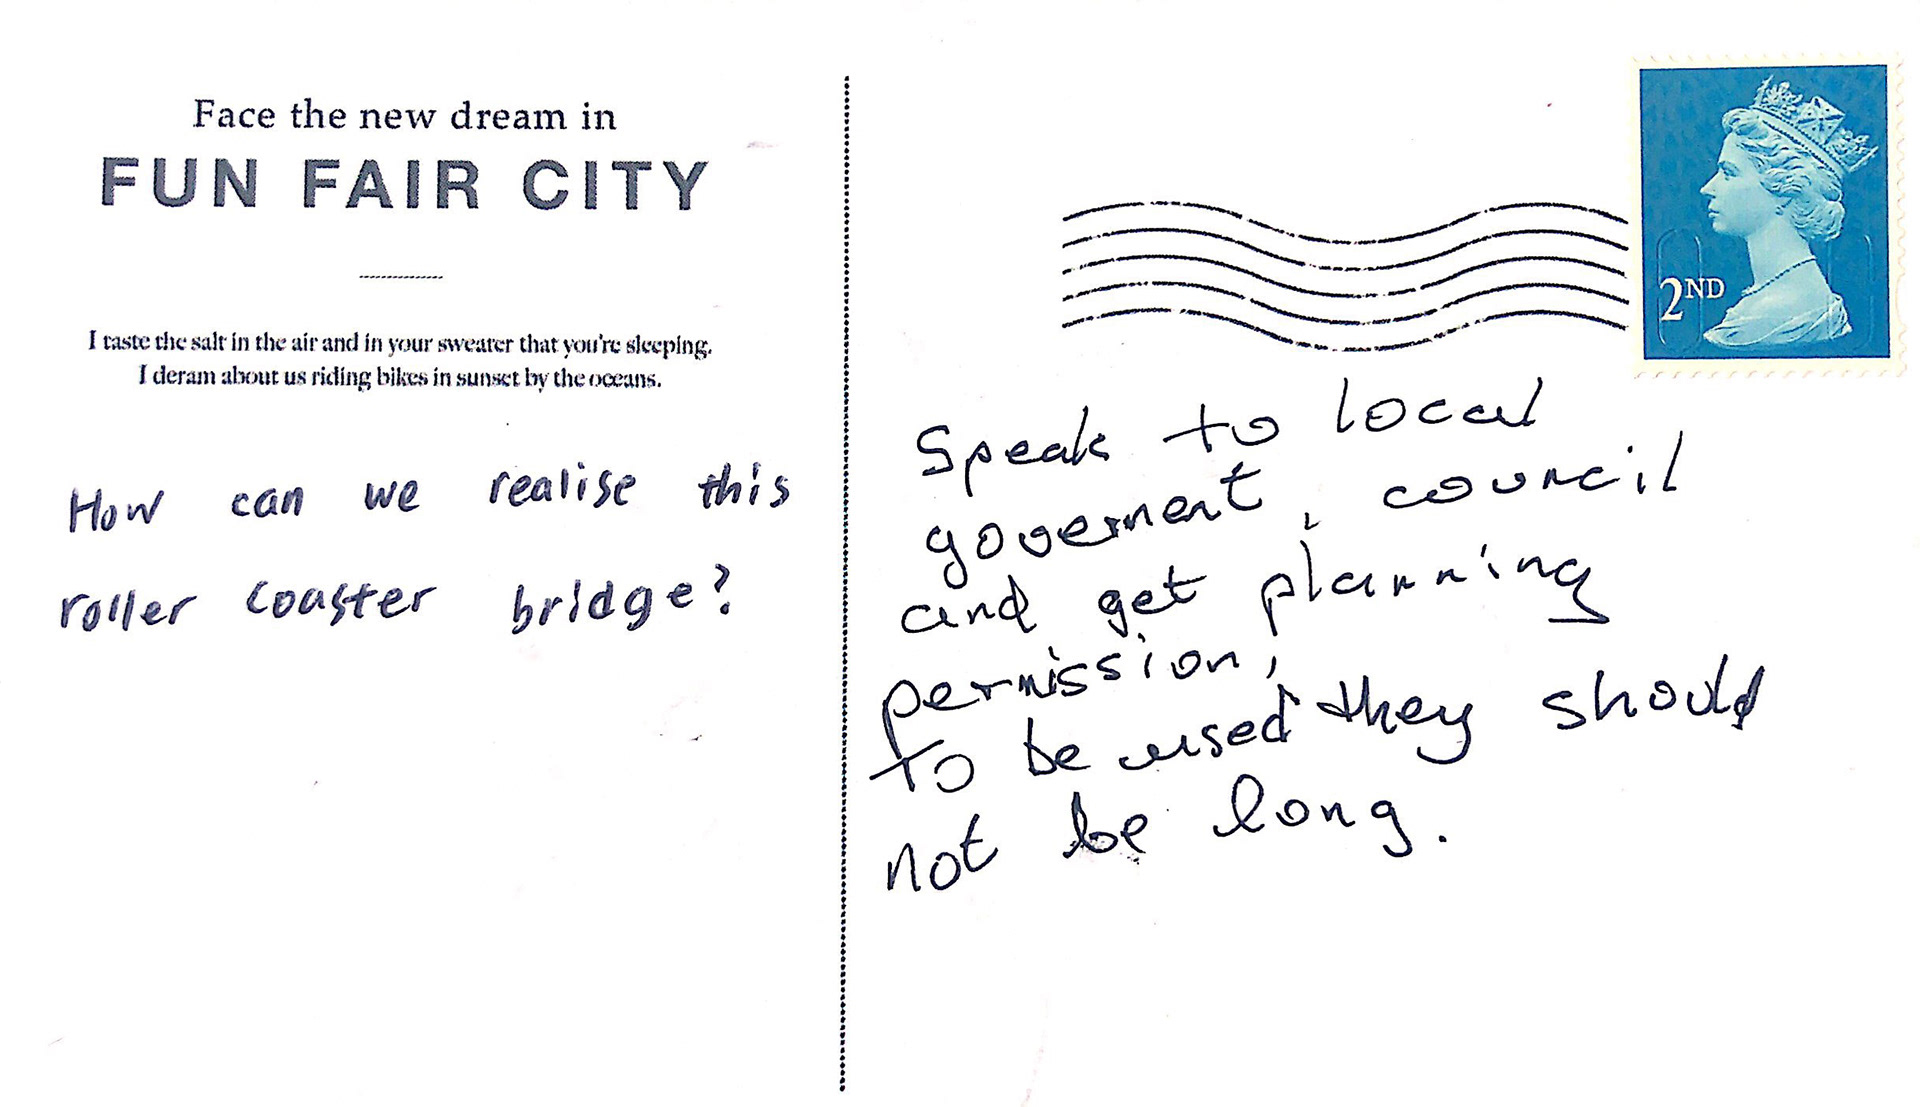 Face the new dream in
FUN FAIR CITY
I taste the salt in the air and in your sweater that you're sleeping.
I deram about us riding bikes in sunset by the oceans.
How can we realise this
roller coaster bridge?
2ND
Speak to local
goverment, council
and get planning
permission,
to be used they should
not be long.